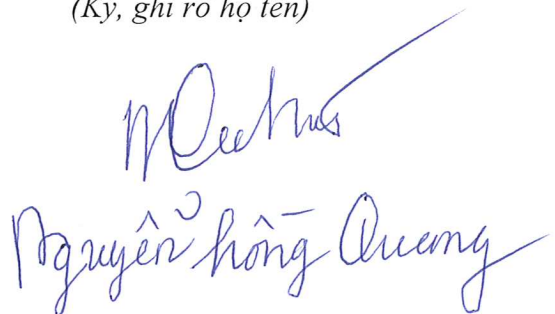 (Ký, ghi rõ họ tên)
Nguyễn hồng Quang